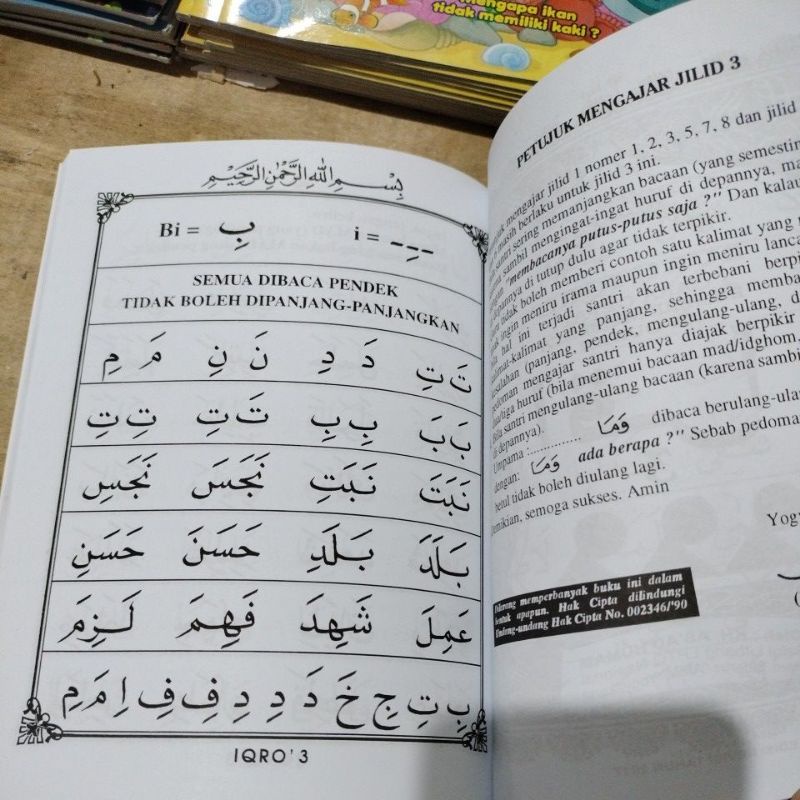 mengapa ikan
tidak memiliki kaki ?
بِسْمِ اللهِ الرَّحْمٰنِ الرَّحِيْمِ
Bi = بِ i = ---ِ---
SEMUA DIBACA PENDEK
TIDAK BOLEH DIPANJANG-PANJANGKAN
تَ تِ دَ دِ نَ نِ مَ مِ
بَ بَ بِ بِ تَ تِ تِ تِ
نَبَتَ نَبَتِ نَجَسَ نَجَسِ
بَلَدَ بَلَدِ حَسَنَ حَسَنِ
عَمِلَ شَهِدَ فَهِمَ لَزِمَ
بِ تِ جِ خَ دَ دِ دِ فِ فِ اِ مَ مِ
IQRO' 3
PETUJUK MENGAJAR JILID 3
mengajar jilid 1 nomer 1, 2, 3, 5, 7, 8 dan jilid
masih berlaku untuk jilid 3 ini.
santri sering memanjangkan bacaan (yang semestin
sambil mengingat-ingat huruf di depannya, ma
"membacanya putus-putus saja ?" Dan kalau
depannya di tutup dulu agar tidak terpikir.
tidak boleh memberi contoh satu kalimat yang
ingin meniru irama maupun ingin meniru lanca
hal ini terjadi santri akan terbebani berpi
kalimat-kalimat yang panjang, sehingga memba
(panjang, pendek, mengulang-ulang, d
pedoman mengajar santri hanya diajak berpikir
huruf (bila menemui bacaan mad/idghom,
santri mengulang-ulang bacaan (karena sambi
di depannya).
Umpama :............ وَمَا dibaca berulang-ula
dengan: وَمَا ada berapa ?" Sebab pedoma
betul tidak boleh diulang lagi.
Demikian, semoga sukses. Amin
Yogy
Dilarang memperbanyak buku ini dalam
bentuk apapun. Hak Cipta dilindungi
Undang-undang Hak Cipta No. 002346/'90